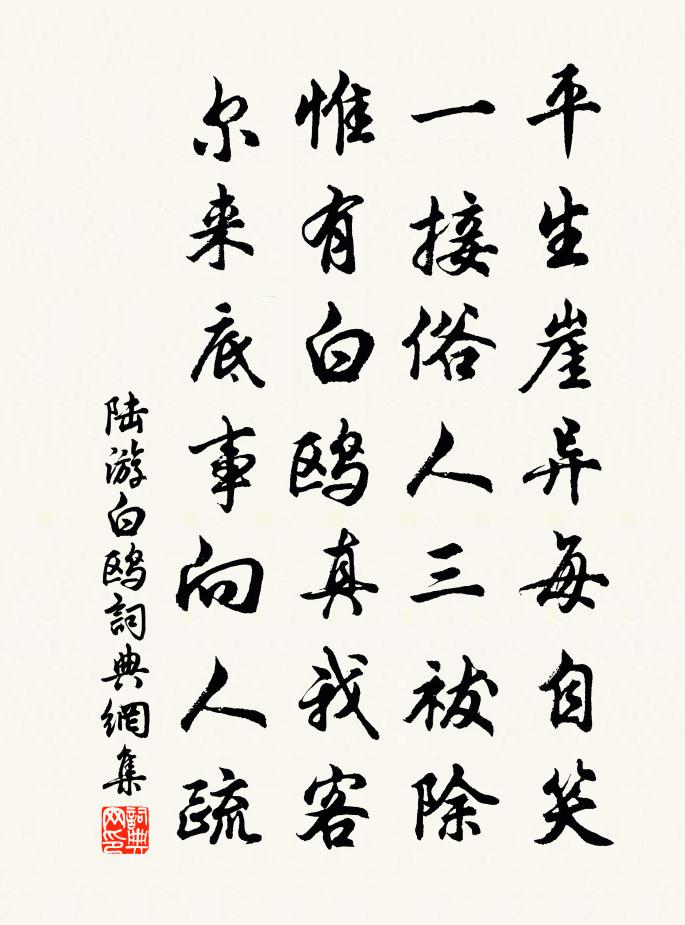 平生崖异每自笑
一接俗人三祓除
惟有白鸥真我客
尔来底事向人疏
陆游白鸥詞典網集
詞典网印